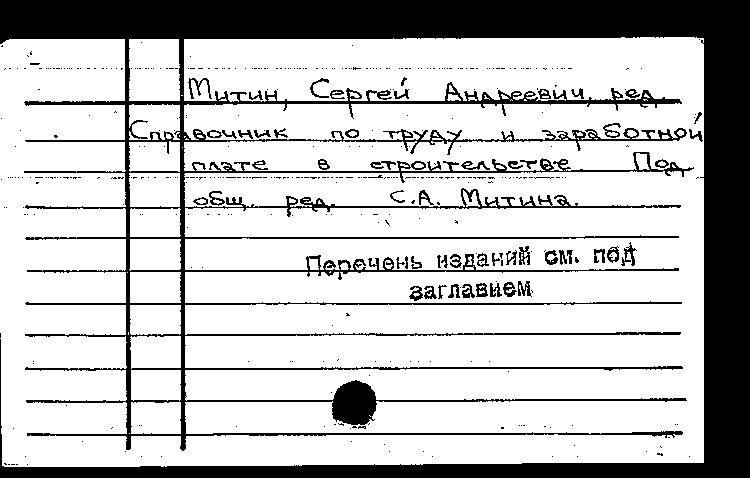 Митин, Сергей Андреевич, ред.
Справочник по труду и заработной
плате в строительстве. Под
общ. ред. С.А. Митина.
Перечень изданий см. под
заглавием